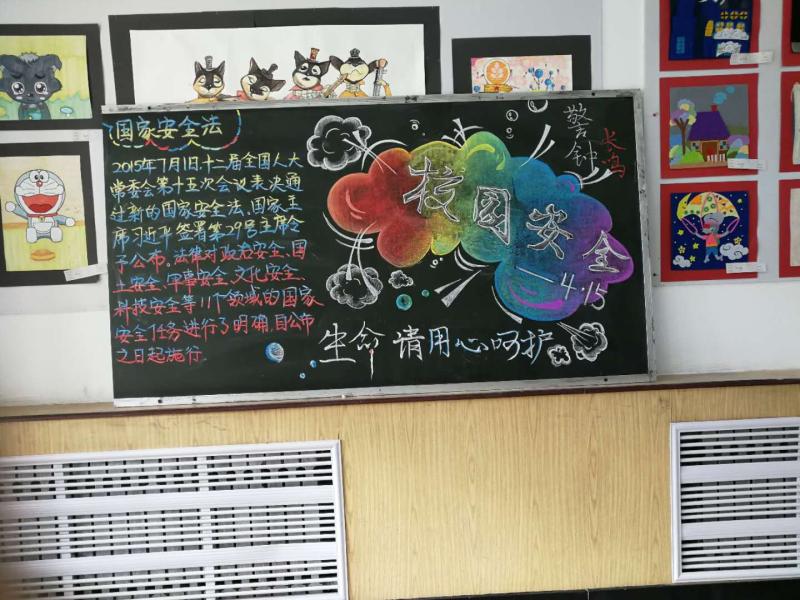 国家安全法
2015年7月1日.十二届全国人大
常委会第十五次会议表决通
过新的国家安全法.国家主
席习近平签署第29号主席令
予公布.法律对政治安全、国
土安全、军事安全、文化安全、
科技安全等11个领域的国家
安全任务进行了明确.自公布
之日起施行.
校园安全
——4.15
警钟
长鸣
生命 请用心呵护